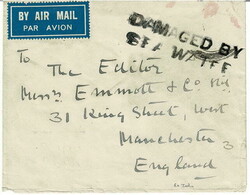 BY AIR MAIL
PAR AVION
DAMAGED BY
SEA WATER
To
The Editor
Messrs Emmott & Co Ltd
31 King Street, West
Manchester 3
England